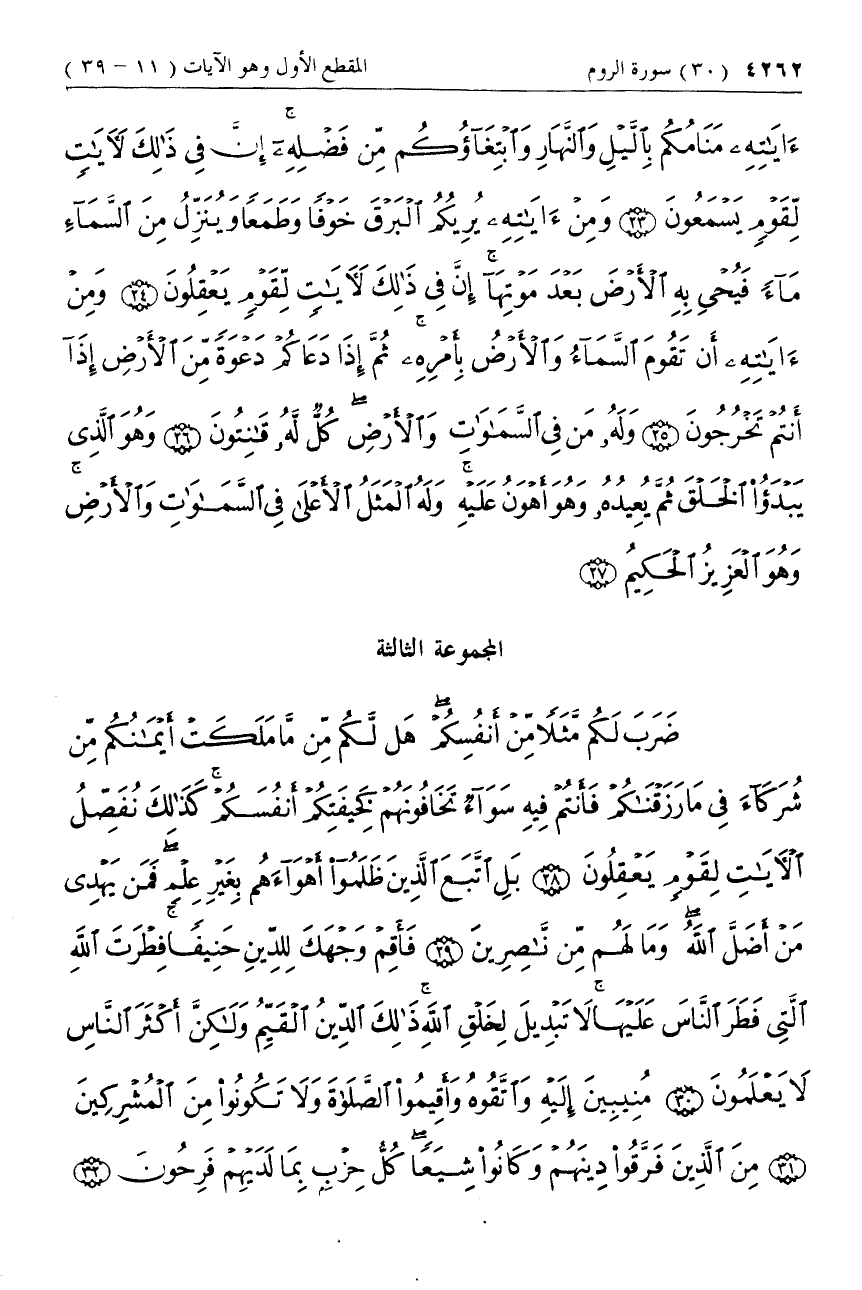 ٤٢٦٢ (٣٠) سورة الروم المقطع الأول وهو الآيات (١١ - ٣٩)
ءَايَٰتِهِۦ مَنَامُكُم بِٱلَّيْلِ وَٱلنَّهَارِ وَٱبْتِغَآؤُكُم مِّن فَضْلِهِۦٓ ۚ إِنَّ فِى ذَٰلِكَ لَأٓيَٰتٍ
لِّقَوْمٍ يَسْمَعُونَ ﴿٢٣﴾ وَمِنْ ءَايَٰتِهِۦ يُرِيكُمُ ٱلْبَرْقَ خَوْفًا وَطَمَعًا وَيُنَزِّلُ مِنَ ٱلسَّمَآءِ
مَآءً فَيُحْىِۦ بِهِ ٱلْأَرْضَ بَعْدَ مَوْتِهَآ ۚ إِنَّ فِى ذَٰلِكَ لَأٓيَٰتٍ لِّقَوْمٍ يَعْقِلُونَ ﴿٢٤﴾ وَمِنْ
ءَايَٰتِهِۦٓ أَن تَقُومَ ٱلسَّمَآءُ وَٱلْأَرْضُ بِأَمْرِهِۦ ۚ ثُمَّ إِذَا دَعَاكُمْ دَعْوَةً مِّنَ ٱلْأَرْضِ إِذَآ
أَنتُمْ تَخْرُجُونَ ﴿٢٥﴾ وَلَهُۥ مَن فِى ٱلسَّمَٰوَٰتِ وَٱلْأَرْضِ ۖ كُلٌّ لَّهُۥ قَٰنِتُونَ ﴿٢٦﴾ وَهُوَ ٱلَّذِى
يَبْدَؤُا۟ ٱلْخَلْقَ ثُمَّ يُعِيدُهُۥ وَهُوَ أَهْوَنُ عَلَيْهِ ۚ وَلَهُ ٱلْمَثَلُ ٱلْأَعْلَىٰ فِى ٱلسَّمَٰوَٰتِ وَٱلْأَرْضِ ۚ
وَهُوَ ٱلْعَزِيزُ ٱلْحَكِيمُ ﴿٢٧﴾
المجموعة الثالثة
ضَرَبَ لَكُم مَّثَلًا مِّنْ أَنفُسِكُمْ ۖ هَل لَّكُم مِّن مَّا مَلَكَتْ أَيْمَٰنُكُم مِّن
شُرَكَآءَ فِى مَا رَزَقْنَٰكُمْ فَأَنتُمْ فِيهِ سَوَآءٌ تَخَافُونَهُمْ كَخِيفَتِكُمْ أَنفُسَكُمْ ۚ كَذَٰلِكَ نُفَصِّلُ
ٱلْأٓيَٰتِ لِقَوْمٍ يَعْقِلُونَ ﴿٢٨﴾ بَلِ ٱتَّبَعَ ٱلَّذِينَ ظَلَمُوٓا۟ أَهْوَآءَهُم بِغَيْرِ عِلْمٍ ۖ فَمَن يَهْدِى
مَنْ أَضَلَّ ٱللَّهُ ۖ وَمَا لَهُم مِّن نَّٰصِرِينَ ﴿٢٩﴾ فَأَقِمْ وَجْهَكَ لِلدِّينِ حَنِيفًا ۚ فِطْرَتَ ٱللَّهِ
ٱلَّتِى فَطَرَ ٱلنَّاسَ عَلَيْهَا ۚ لَا تَبْدِيلَ لِخَلْقِ ٱللَّهِ ۚ ذَٰلِكَ ٱلدِّينُ ٱلْقَيِّمُ وَلَٰكِنَّ أَكْثَرَ ٱلنَّاسِ
لَا يَعْلَمُونَ ﴿٣٠﴾ مُنِيبِينَ إِلَيْهِ وَٱتَّقُوهُ وَأَقِيمُوا۟ ٱلصَّلَوٰةَ وَلَا تَكُونُوا۟ مِنَ ٱلْمُشْرِكِينَ
﴿٣١﴾ مِنَ ٱلَّذِينَ فَرَّقُوا۟ دِينَهُمْ وَكَانُوا۟ شِيَعًا ۖ كُلُّ حِزْبٍۭ بِمَا لَدَيْهِمْ فَرِحُونَ ﴿٣٢﴾